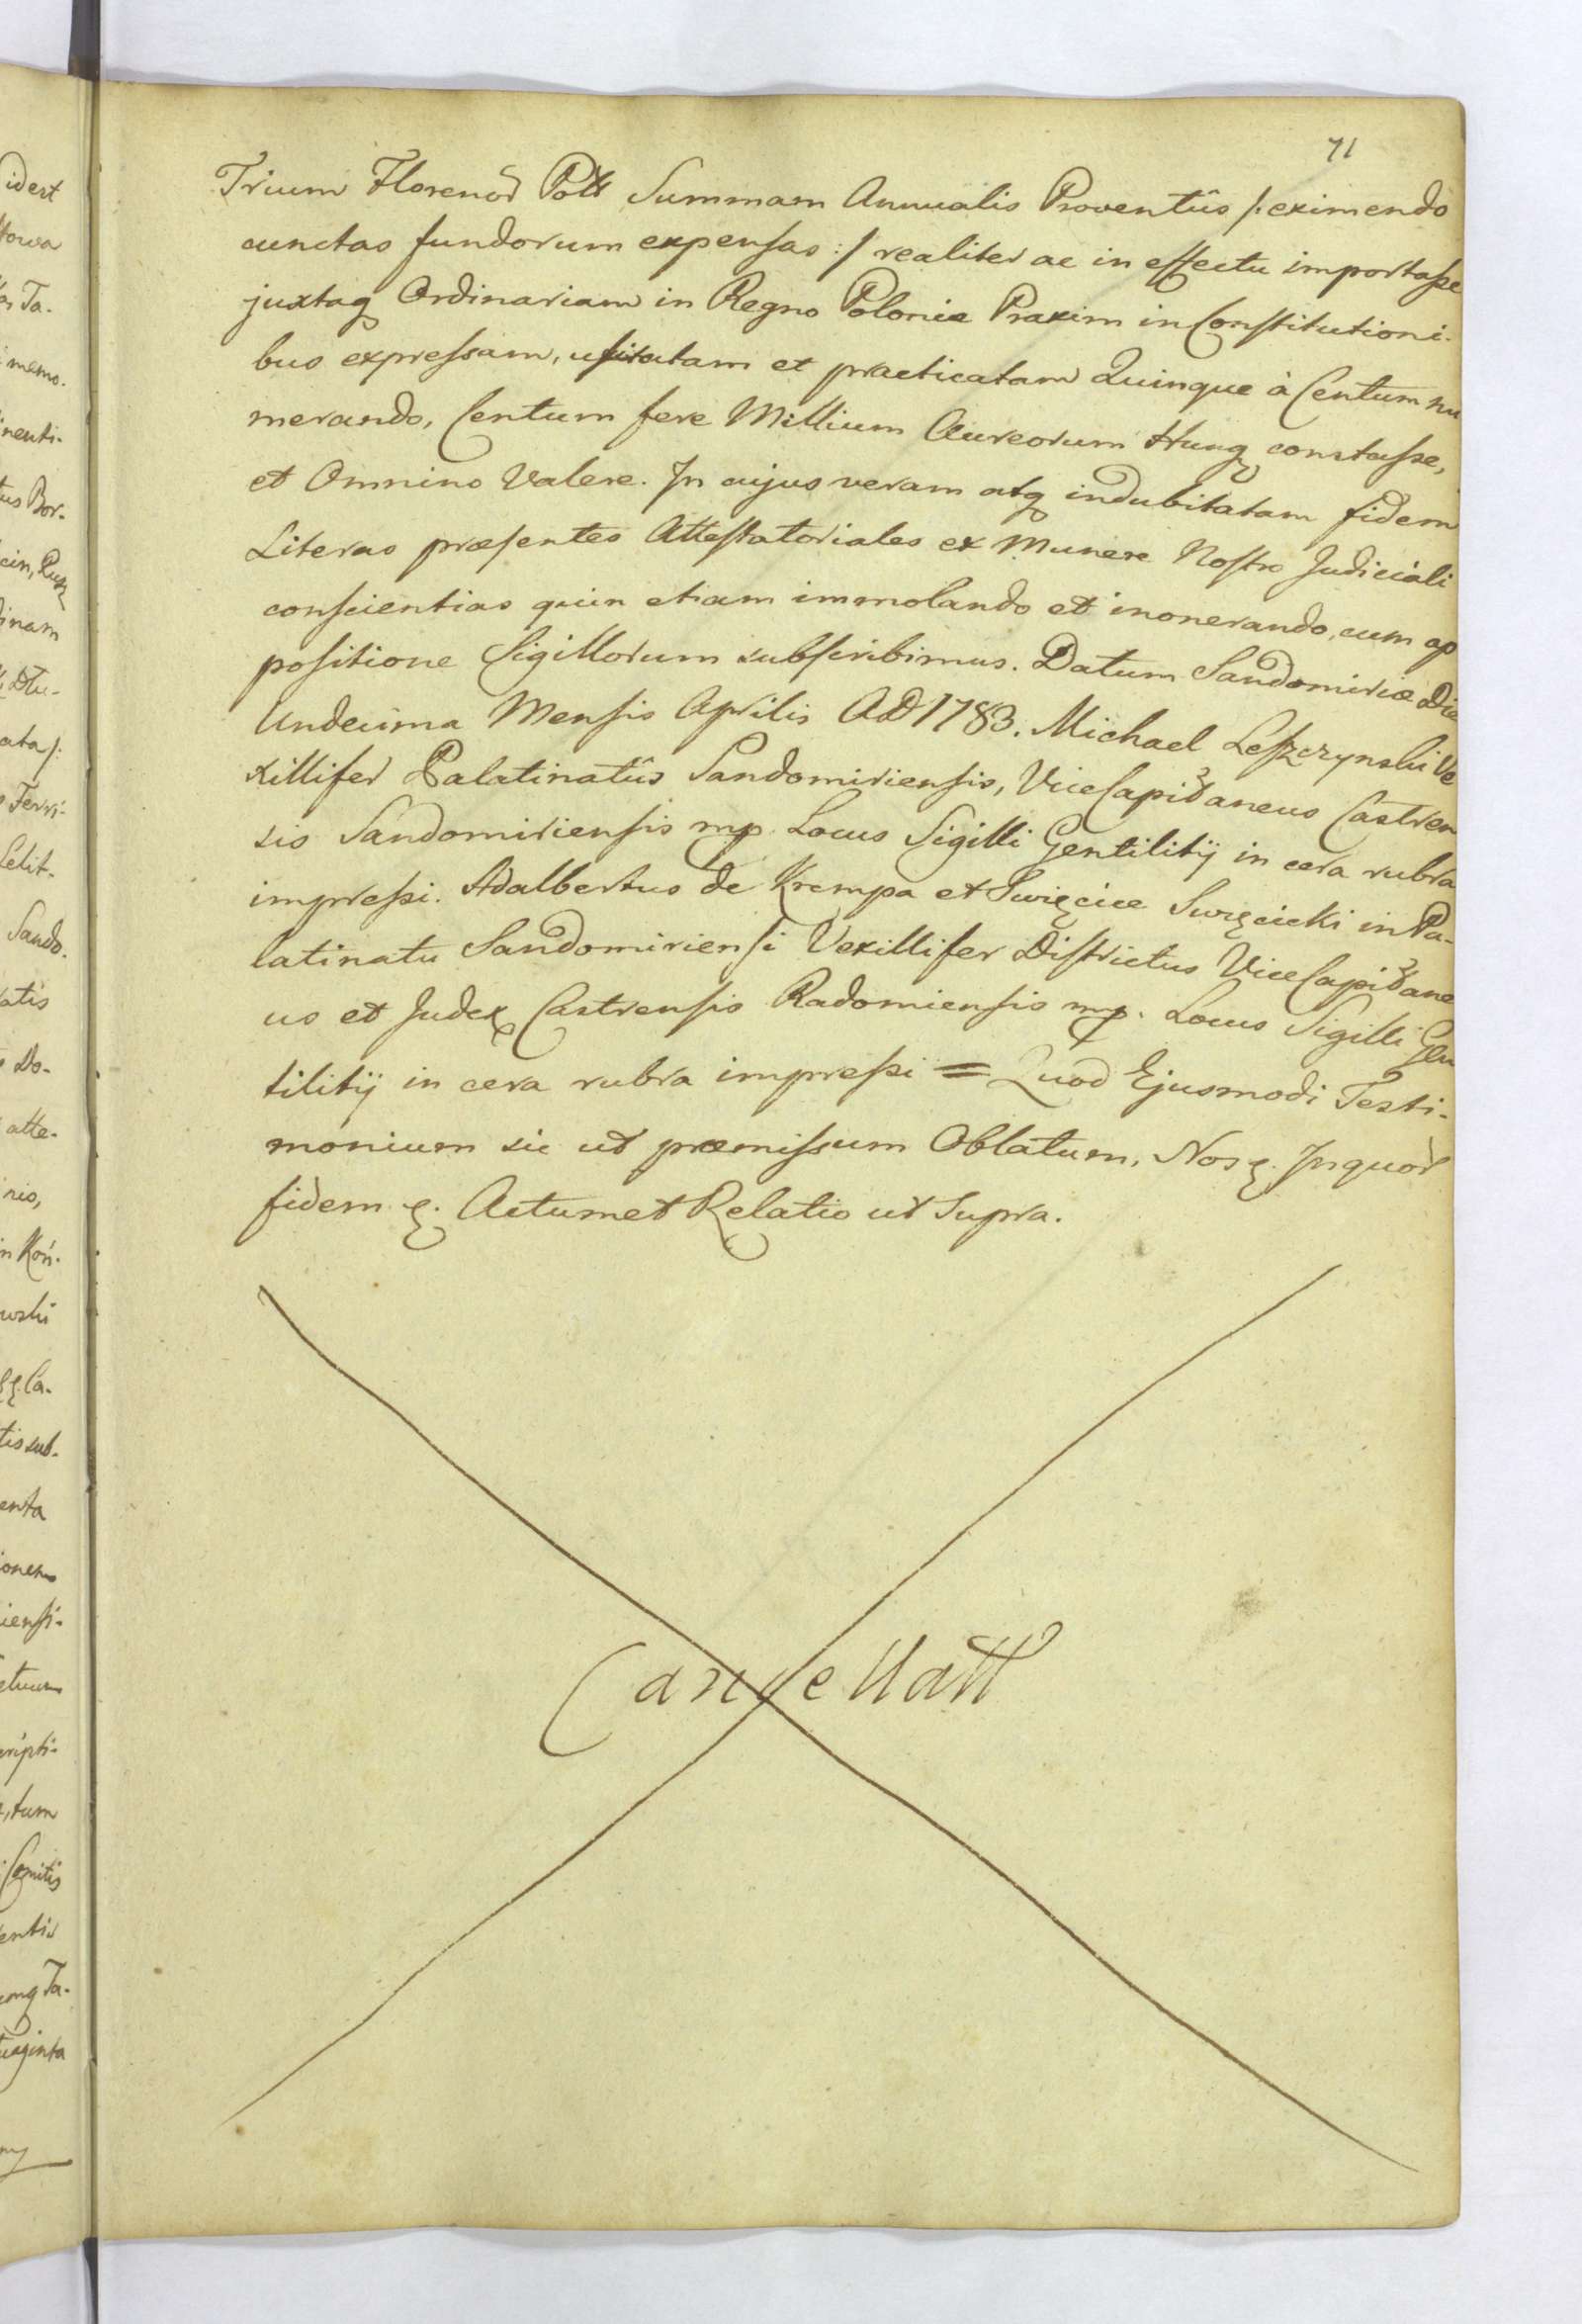 71
Trium Florenor̃ Poll̃ Summam Annualis Proventûs /: eximendo
cunctas fundorum expensas :/ realiter ac in effectu importasse
juxtaq Ordinariam in Regno Poloniæ Praxim in Constitutioni-
bus expressam, usitatam et practicatam Quinque à Centum nu
merando, Centum fere Millium Aureorum Hung constasse,
et Omnino Valere. In cujus veram atq indubitatam fidem
Literas præsentes Attestatoriales ex Munere Nostro Judiciali
conscientias quin etiam immolando et inonerando, cum ap
positione Sigillorum subscribimus. Datum Sandomiriæ Die
Undecima Mensis Aprilis AD 1783. Michael Leszczynski Ve
xillifer Palatinatûs Sandomiriensis, ViceCapitaneus Castren
sis Sandomiriensis mp. Locus Sigilli Gentilitij in cera rubra
impressi. Adalbertus de Krempa et Swięcice Swięcicki in Pa-
latinatu Sandomiriensi Vexillifer Districtus ViceCapitane
us et Judex Castrensis Radomiensis mp. Locus Sigilli Gen
tilitij in cera rubra impressi = Quod Ejusmodi Testi-
monium sic ut præmissum Oblatum, Nos. In quor
fidem. Actum et Relatio ut Supra.
Cancellatt
idest
memo.
nenti-
tus Bor-
inam
ata /:
Ferri-
Sando.
atis
Do-
atte-
in Koń-
wski
Ca-
tis sub-
enta
ionem
iensi-
ripti-
tum
Comitis
entis
Ta-